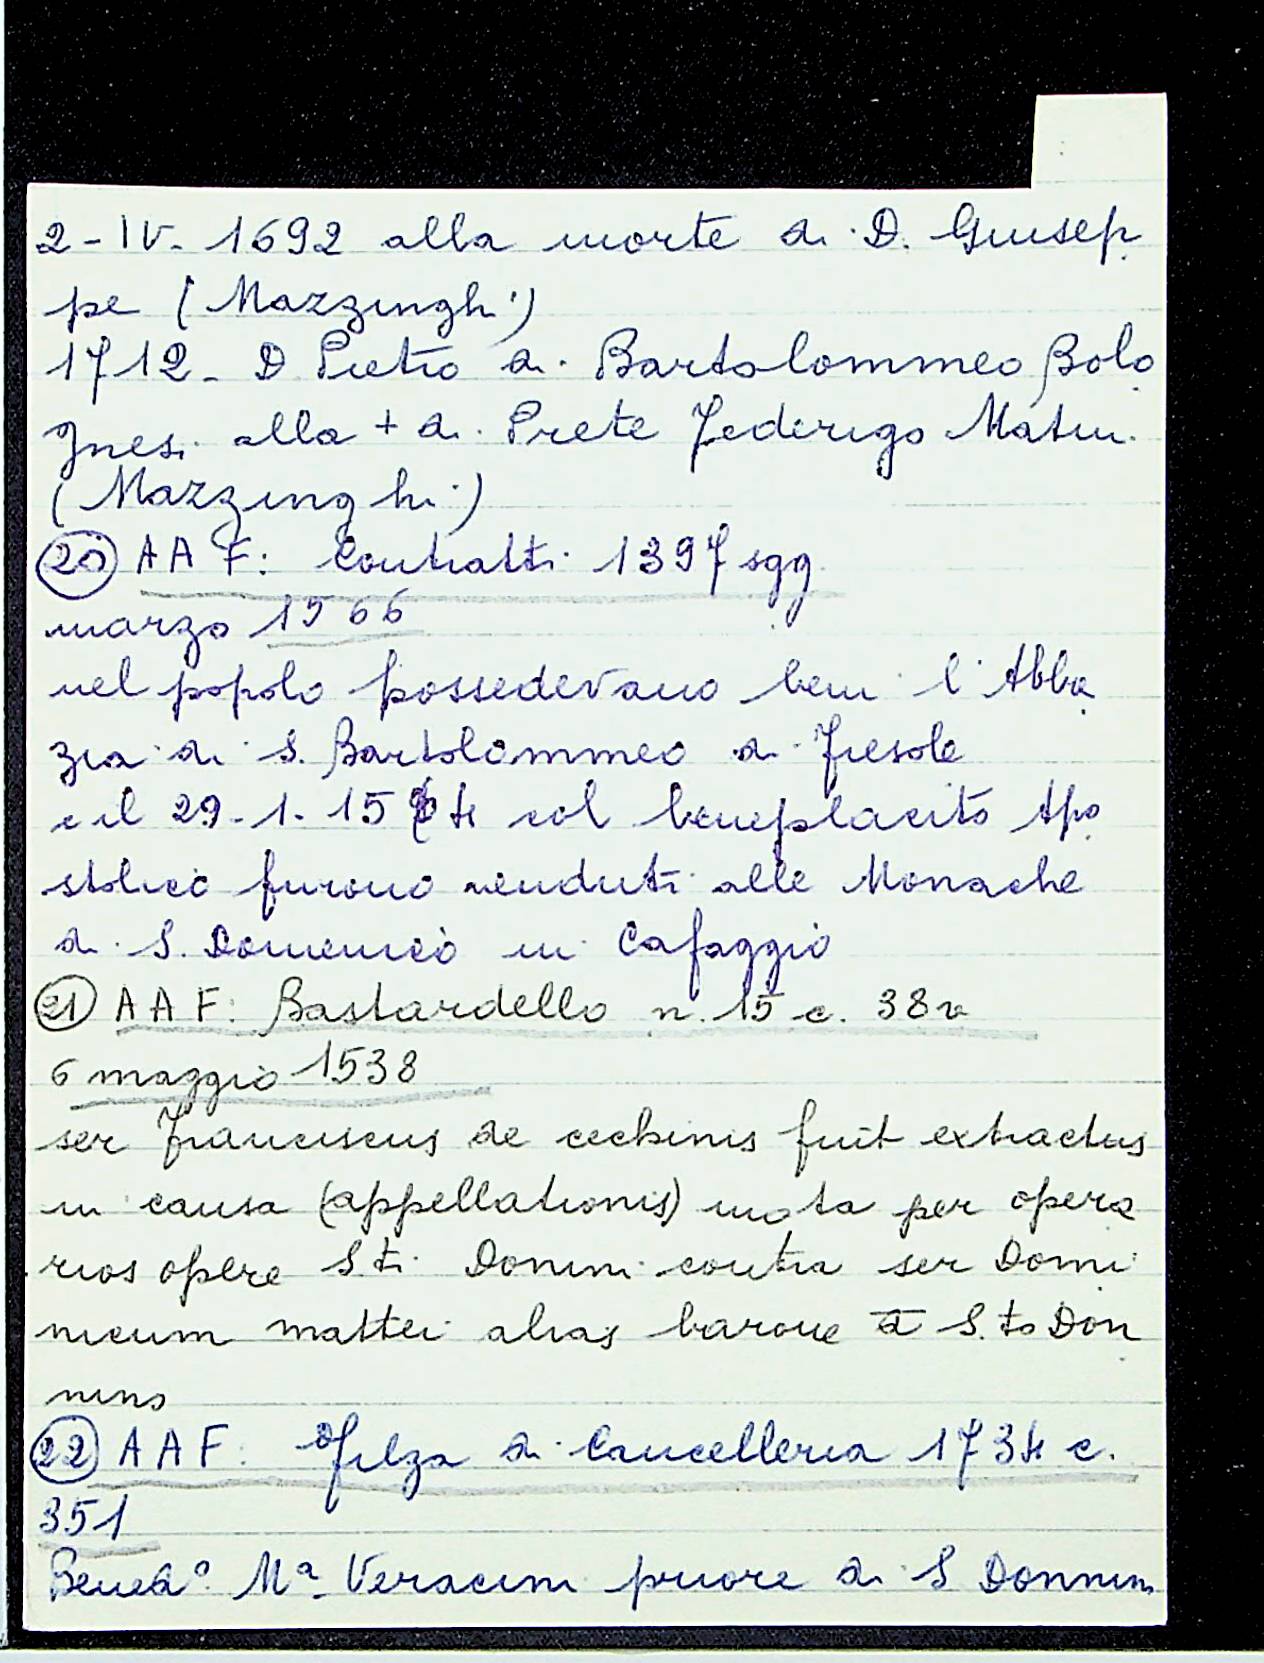 2-IV-1692 alla morte di D. Giusep
pe (Mazzinghi)
1712- D Pietro di Bartolommeo Bolo
gnesi alla + di Prete Federigo Matini
(Mazzinghi)
20 AAF: Contratti 1397 sgg
marzo 1566
nel popolo possedevano beni l'Abba
zia di S. Bartolommeo di Fiesole
e il 29-1-15 4 col beneplacito Apo
stolico furono venduti alle Monache
di S. Domenico in Cafaggio
21 AAF: Bastardello n. 15 c. 38v
6 maggio 1538
ser Franciscus de cechinis fuit extractus
in causa (appellationis) mota per opera
rios opere S.ti Donini contra ser Domi
nicum mattei alias barone a S.to Don
nino
22 AAF: Filza di Cancelleria 1734 c.
351
Bened° Mª Veracini priore di S Donnino